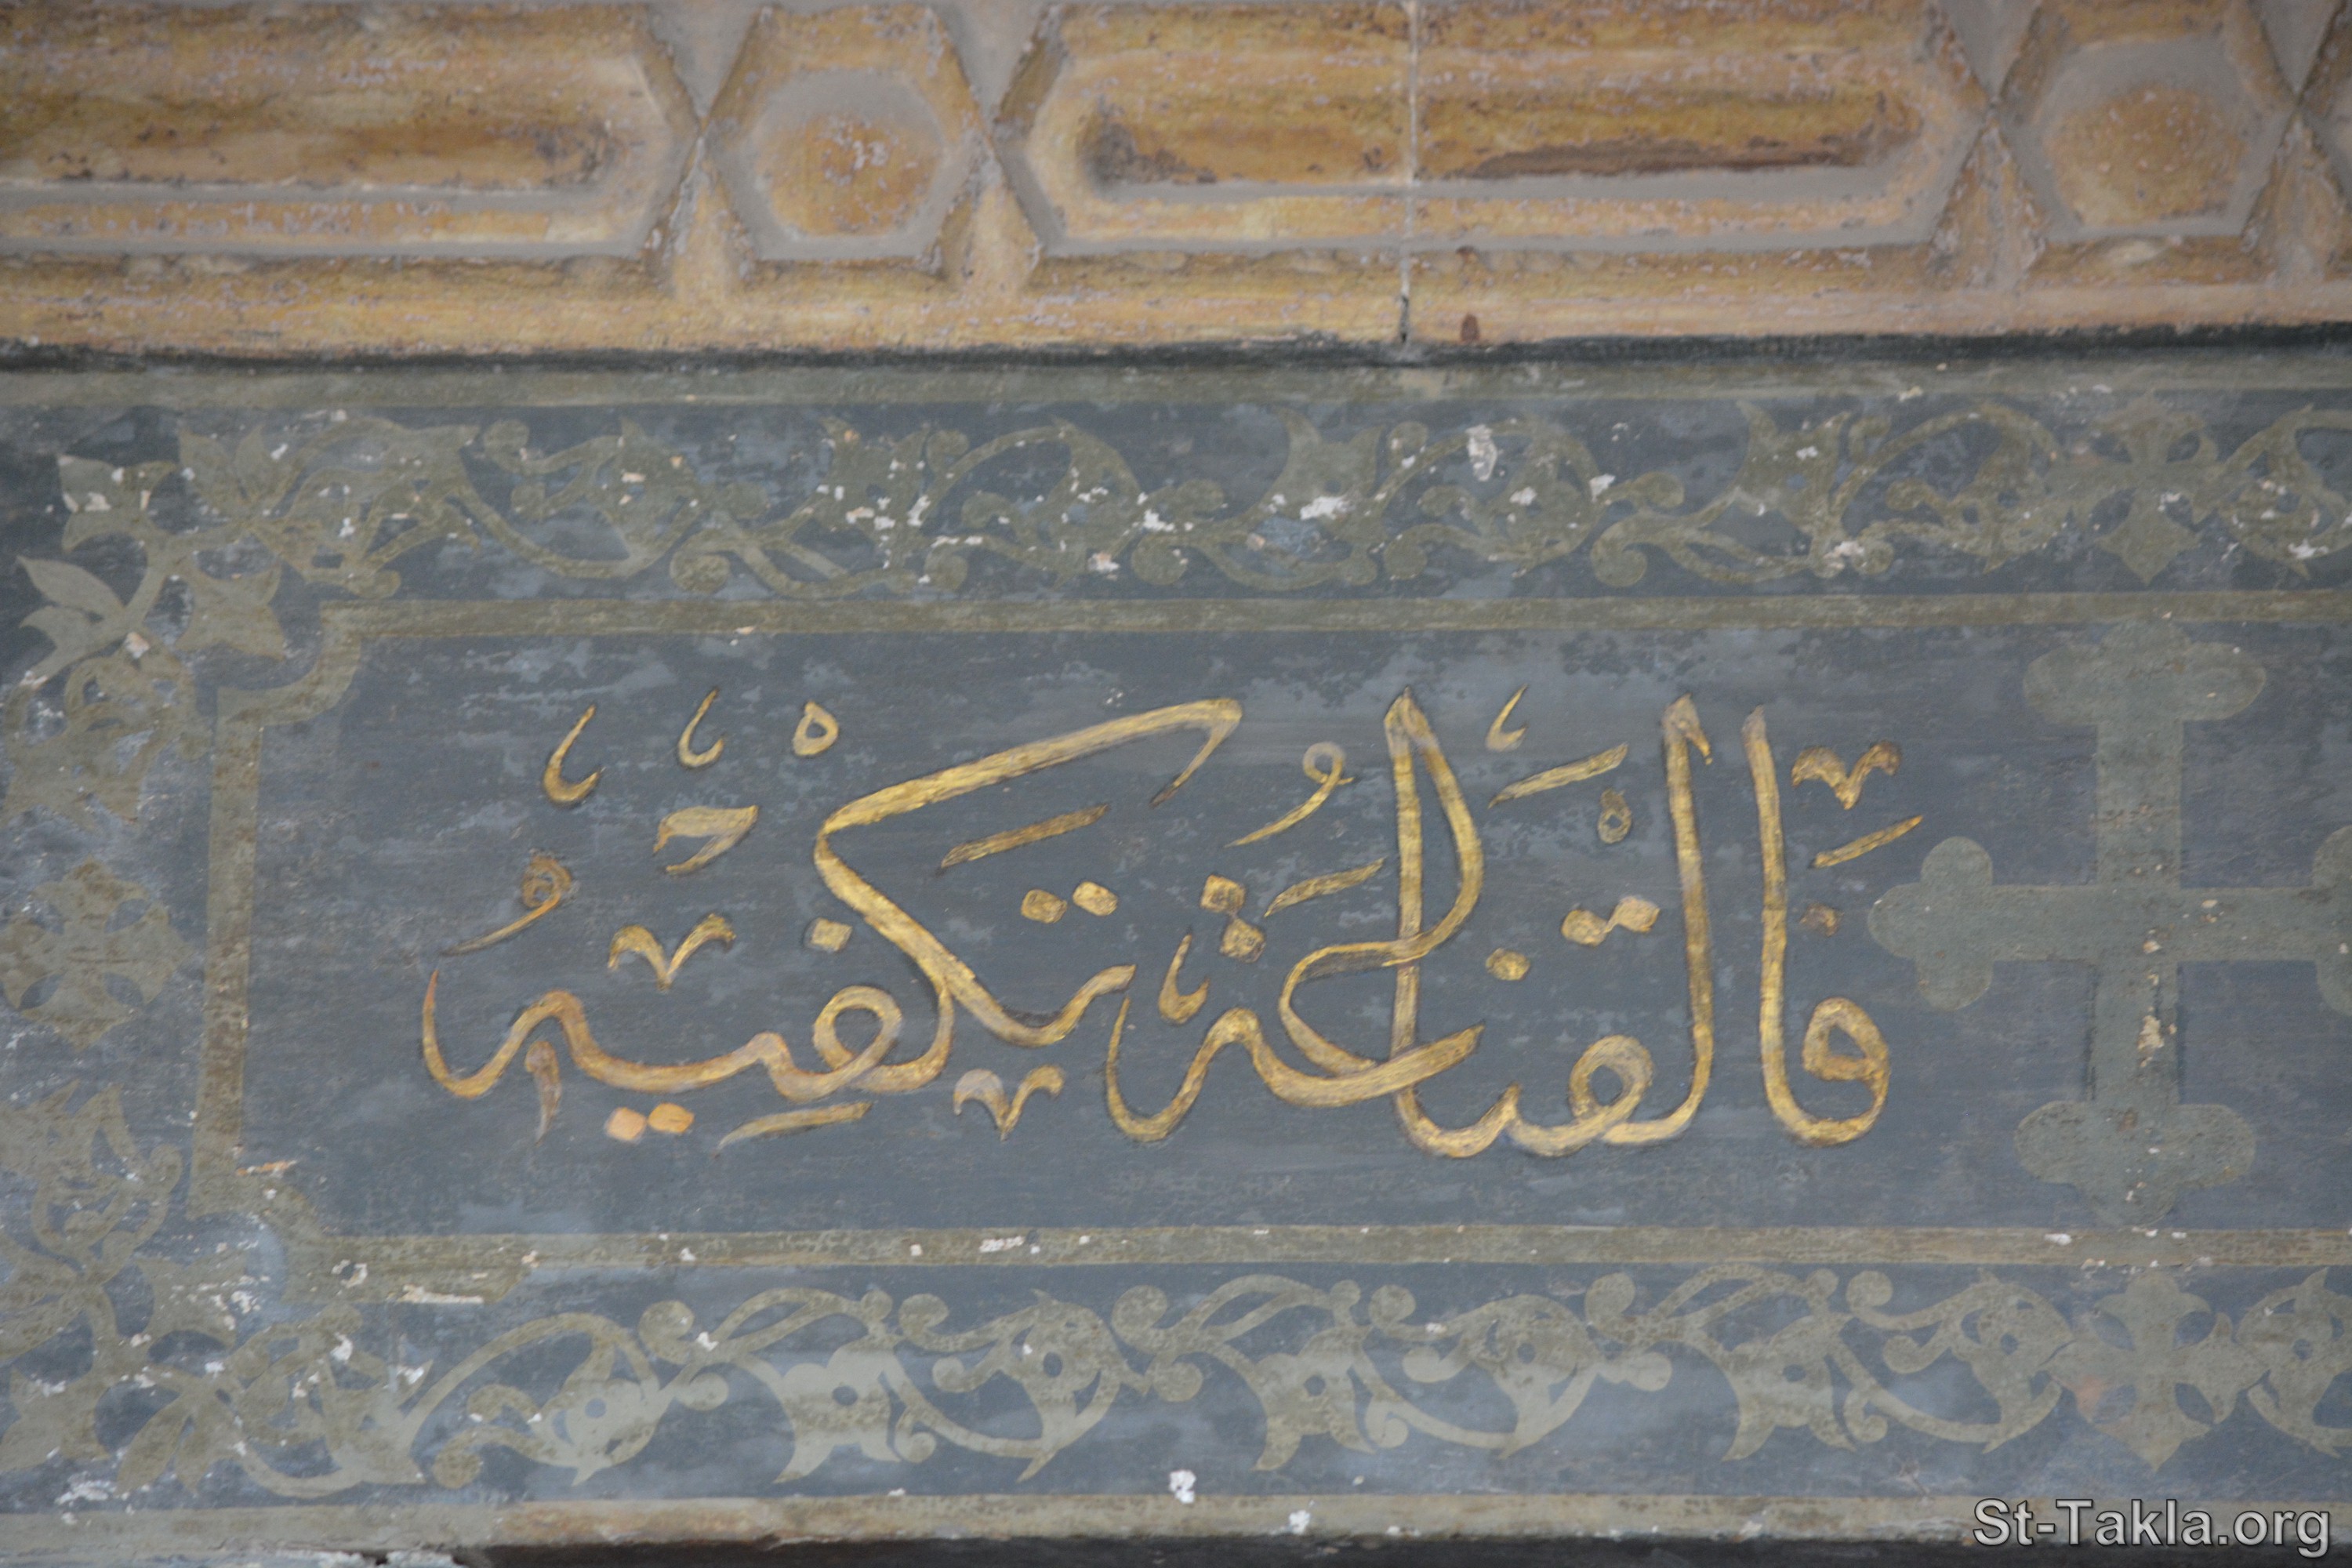 فَالْقَنَاعَةُ تَكْفِيْهِ
St-Takla.org